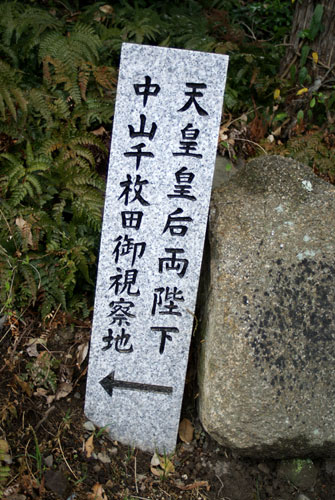 天皇皇后両陛下
中山千枚田御視察地